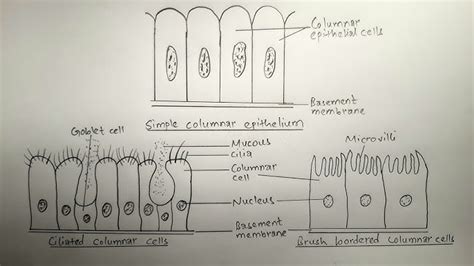 Columnar
epithelial cells
Basement
membrane
Simple columnar epithelium
Goblet cell
Mucous
Cilia
Columnar
cell
Nucleus
Basement
membrane
Ciliated columnar cells
Microvilli
Brush bordered columnar cells